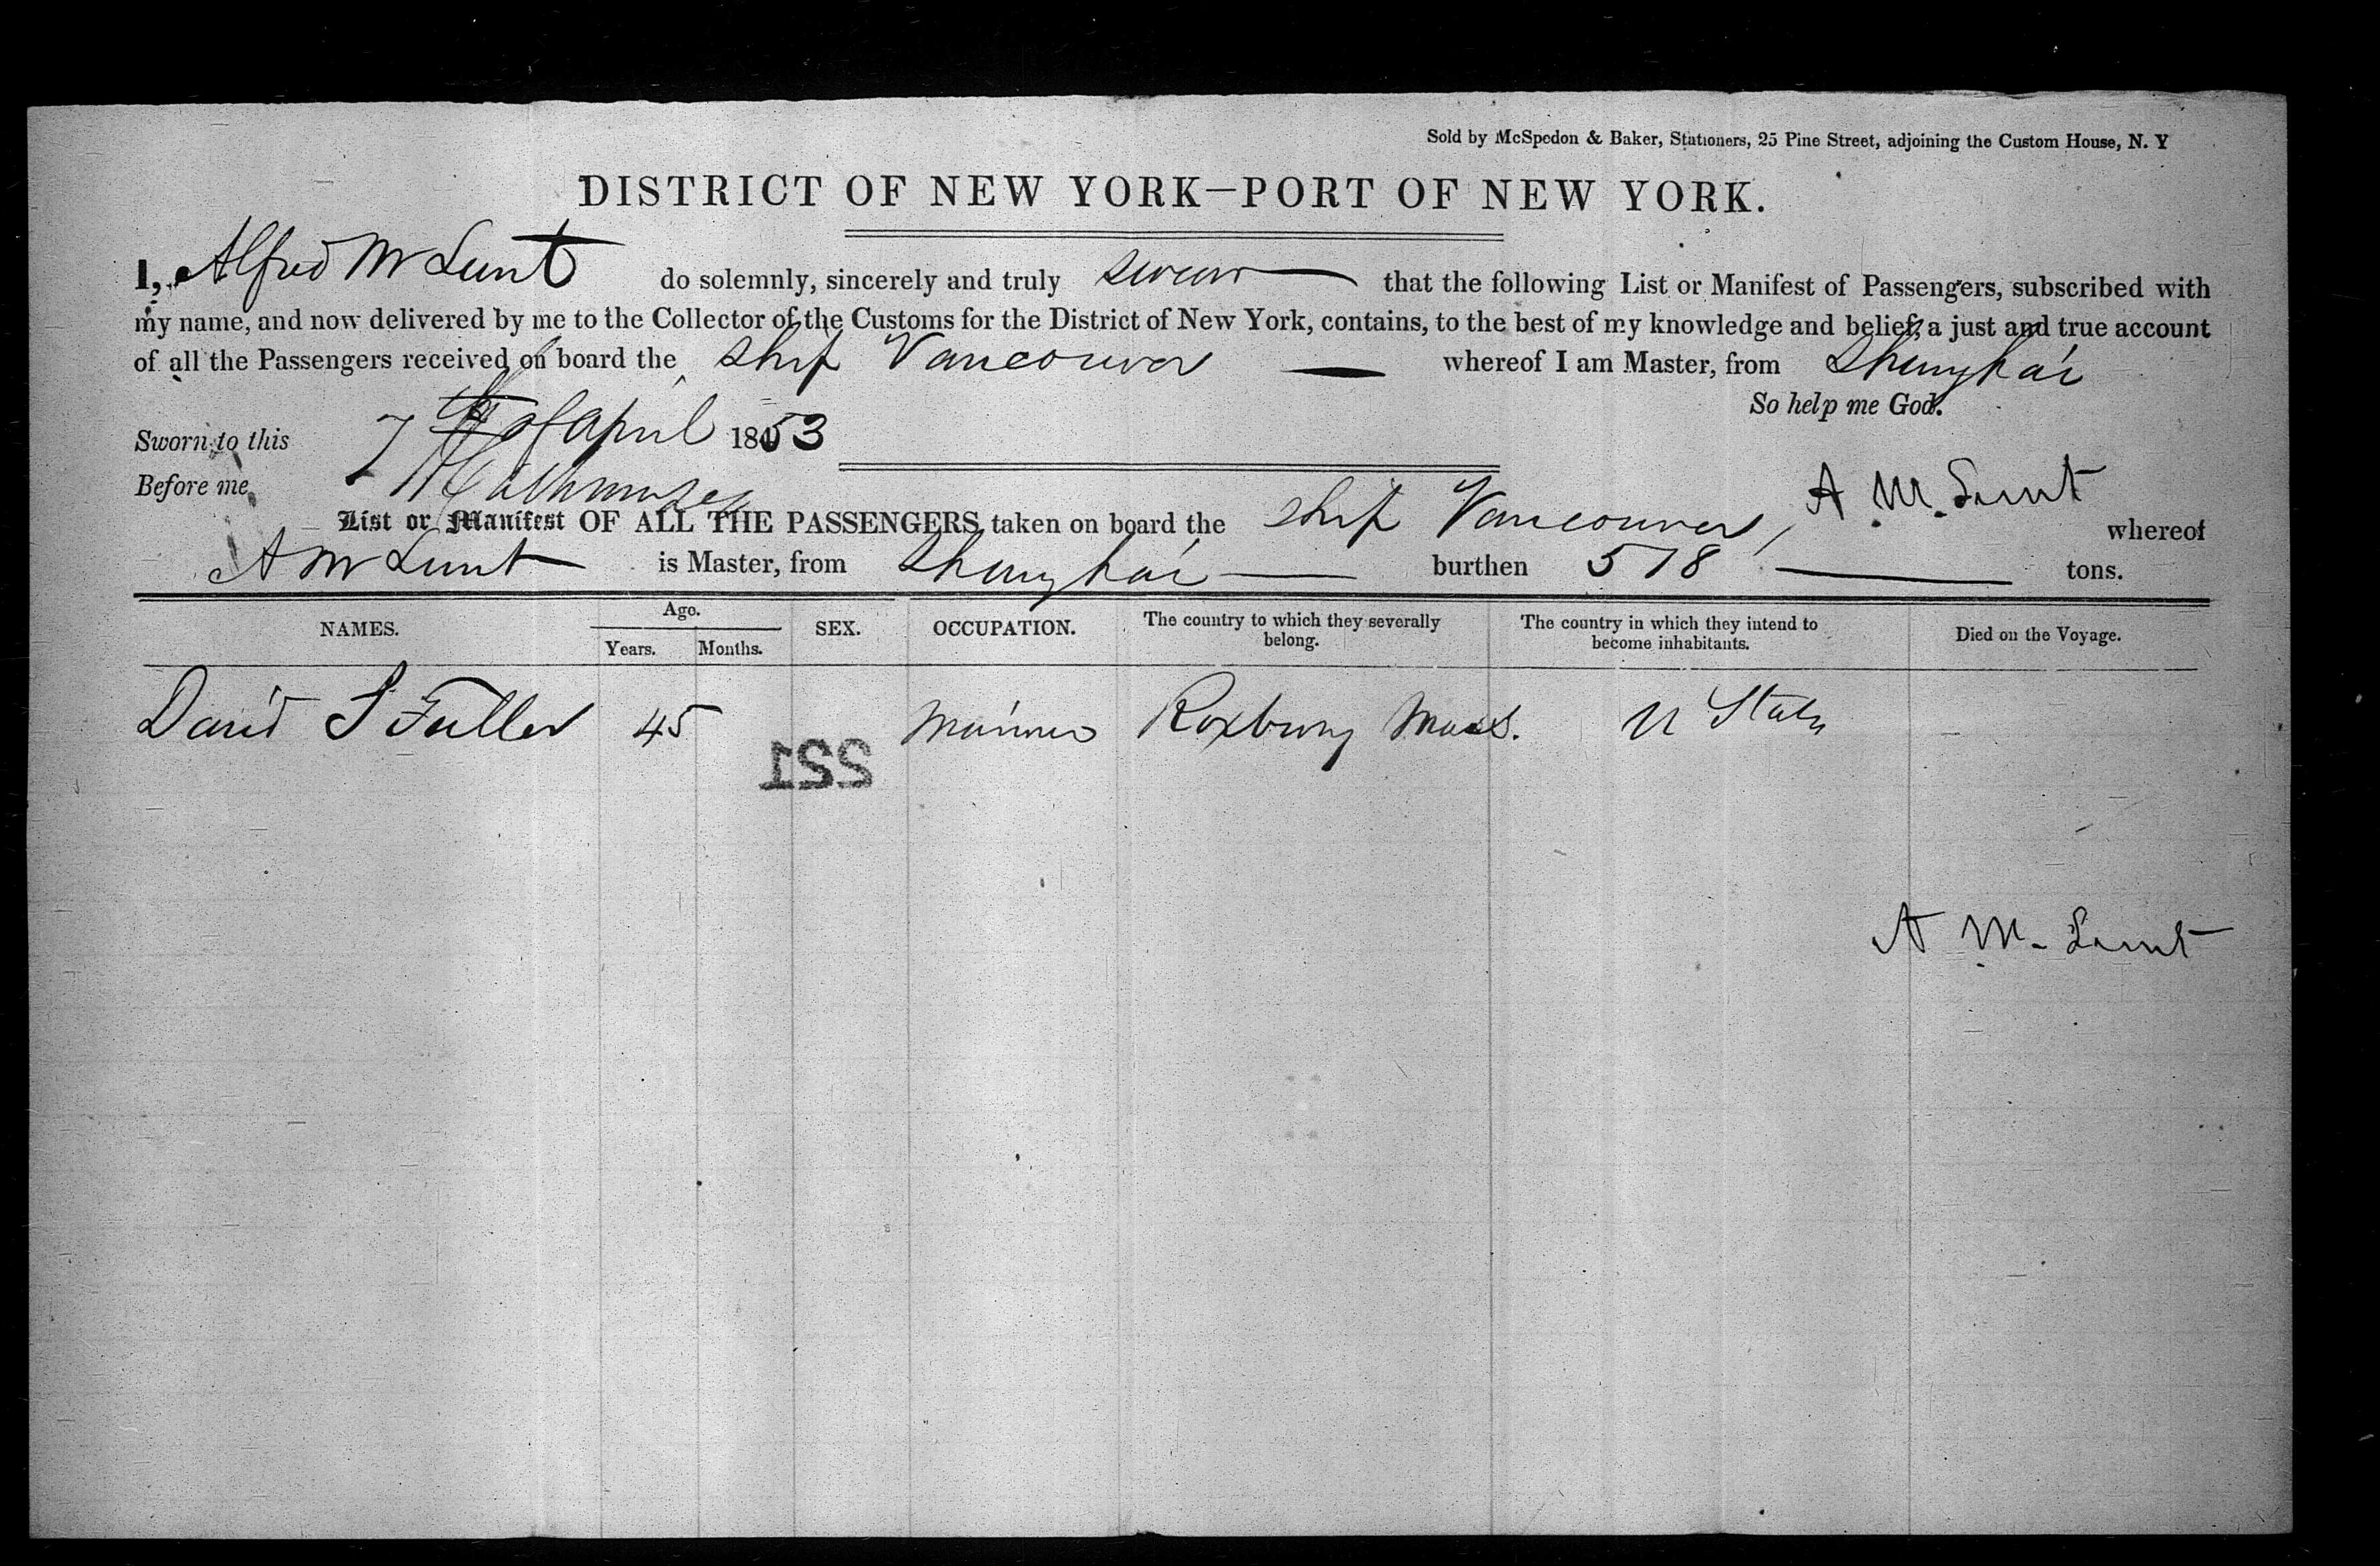 Sold by McSpedon & Baker, Stationers, 25 Pine Street, adjoining the Custom House, N. Y
DISTRICT OF NEW YORK—PORT OF NEW YORK.
I, Alfred M Lunt do solemnly, sincerely and truly swear that the following List or Manifest of Passengers, subscribed with
my name, and now delivered by me to the Collector of the Customs for the District of New York, contains, to the best of my knowledge and belief, a just and true account
of all the Passengers received on board the ship Vancouver whereof I am Master, from Shanghai
So help me God.
Sworn to this 7th of April 1853
Before me
A M. Lunt
List or Manifest OF ALL THE PASSENGERS taken on board the ship Vancouver, whereof
A M Lunt is Master, from Shanghai burthen 578 tons.
NAMES. Age. Years. Months. SEX. OCCUPATION. The country to which they severally belong. The country in which they intend to become inhabitants. Died on the Voyage.
David S Fuller 45 Mariner Roxbury Mass. U States
221
A M. Lunt